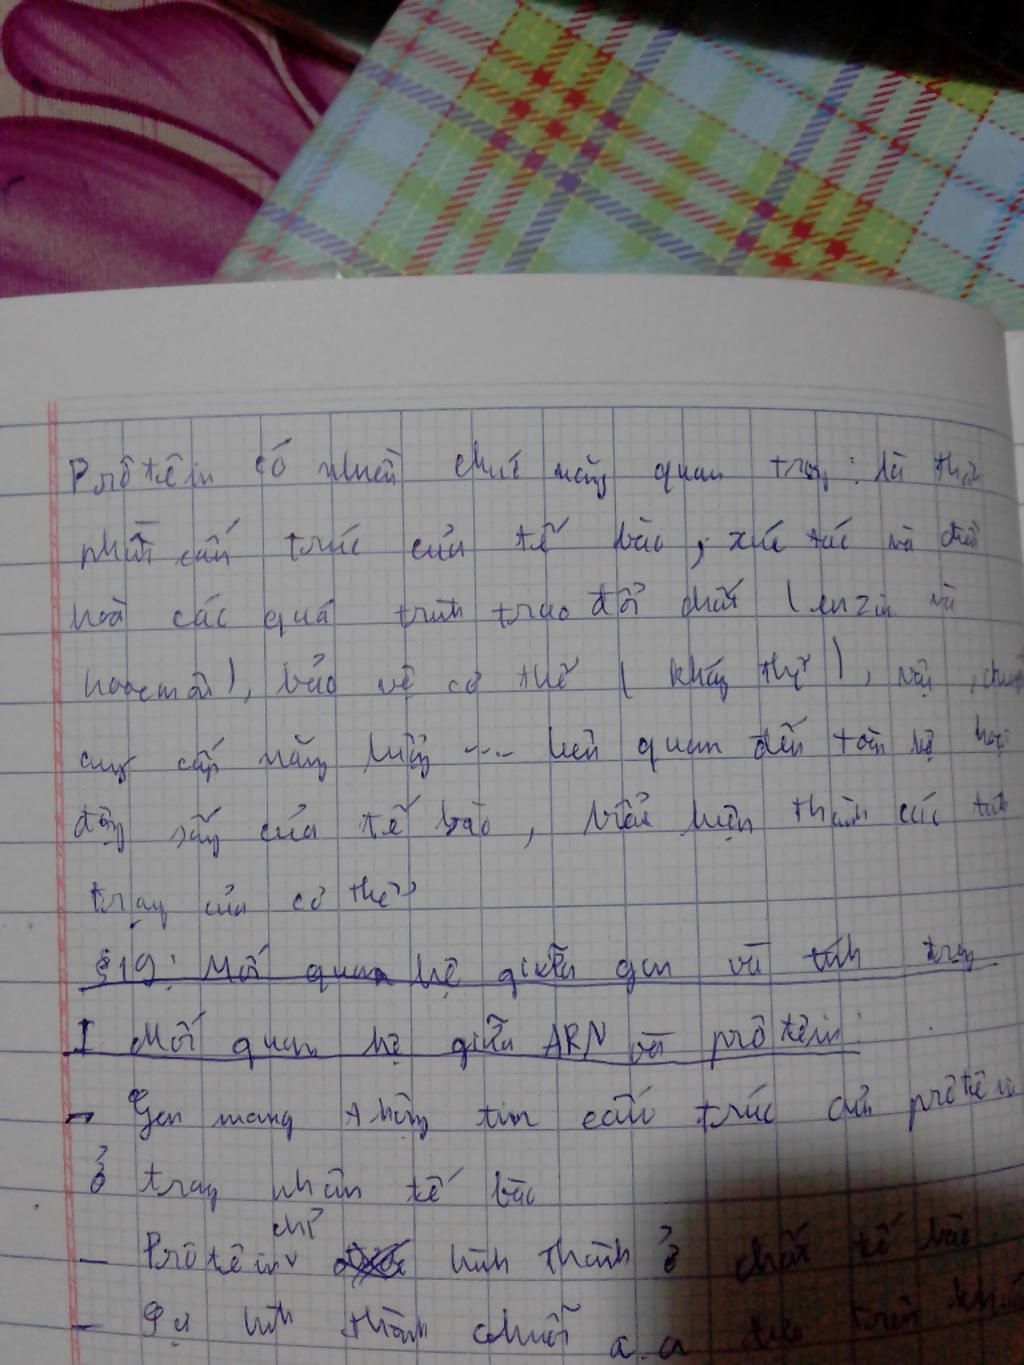 Prôtêin có nhiều chức năng quan trọng: là thành
phần cấu trúc của tế bào, xúc tác và điều
hoà các quá trình trao đổi chất (enzin và
hoocmôn), bảo vệ cơ thể (kháng thể), vận chuyển
cung cấp năng lượng .... liên quan đến toàn bộ hoạt
động sống của tế bào, biểu hiện thành các tính
trạng của cơ thể
§19: Mối quan hệ giữa gen và tính trạng
I Mối quan hệ giữa ARN và prôtêin:
- Gen mang thông tin cấu trúc của prôtêin
ở trong nhân tế bào
- Prôtêin chỉ hình thành ở chất tế bào
- Sự hình thành chuỗi a.a dựa trên khuôn